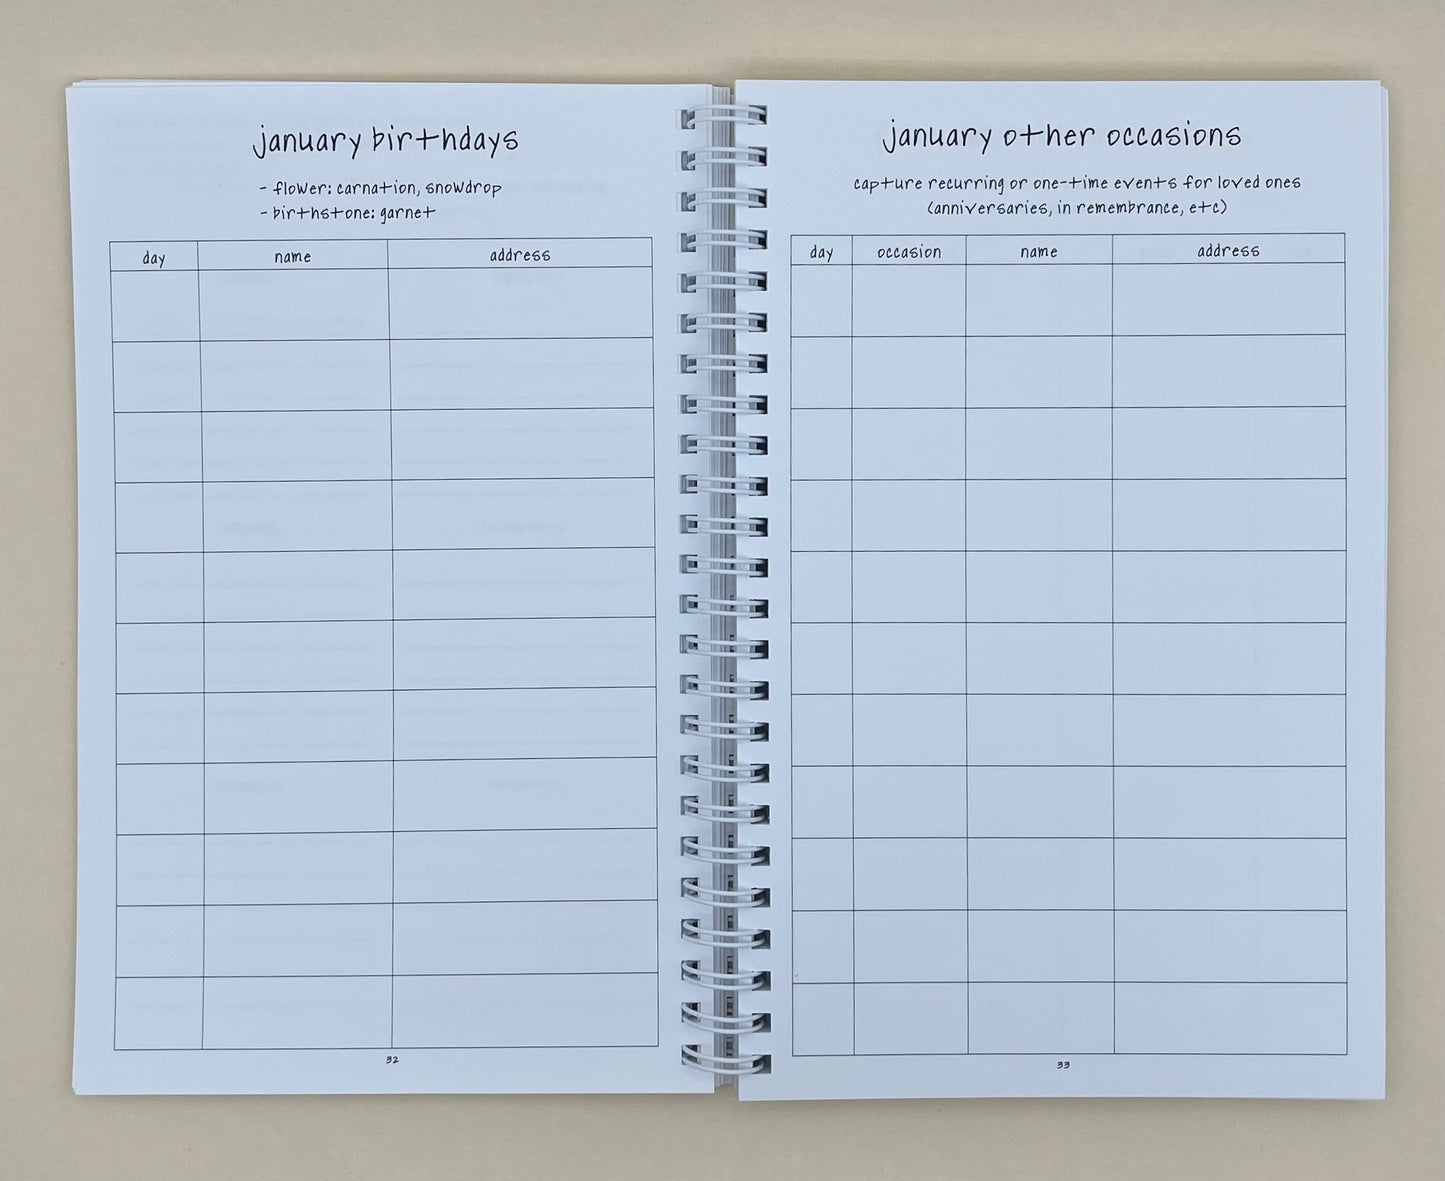 january birthdays
- flower: carnation, snowdrop
- birthstone: garnet
day name address
32
january other occasions
capture recurring or one-time events for loved ones
(anniversaries, in remembrance, etc)
day occasion name address
33